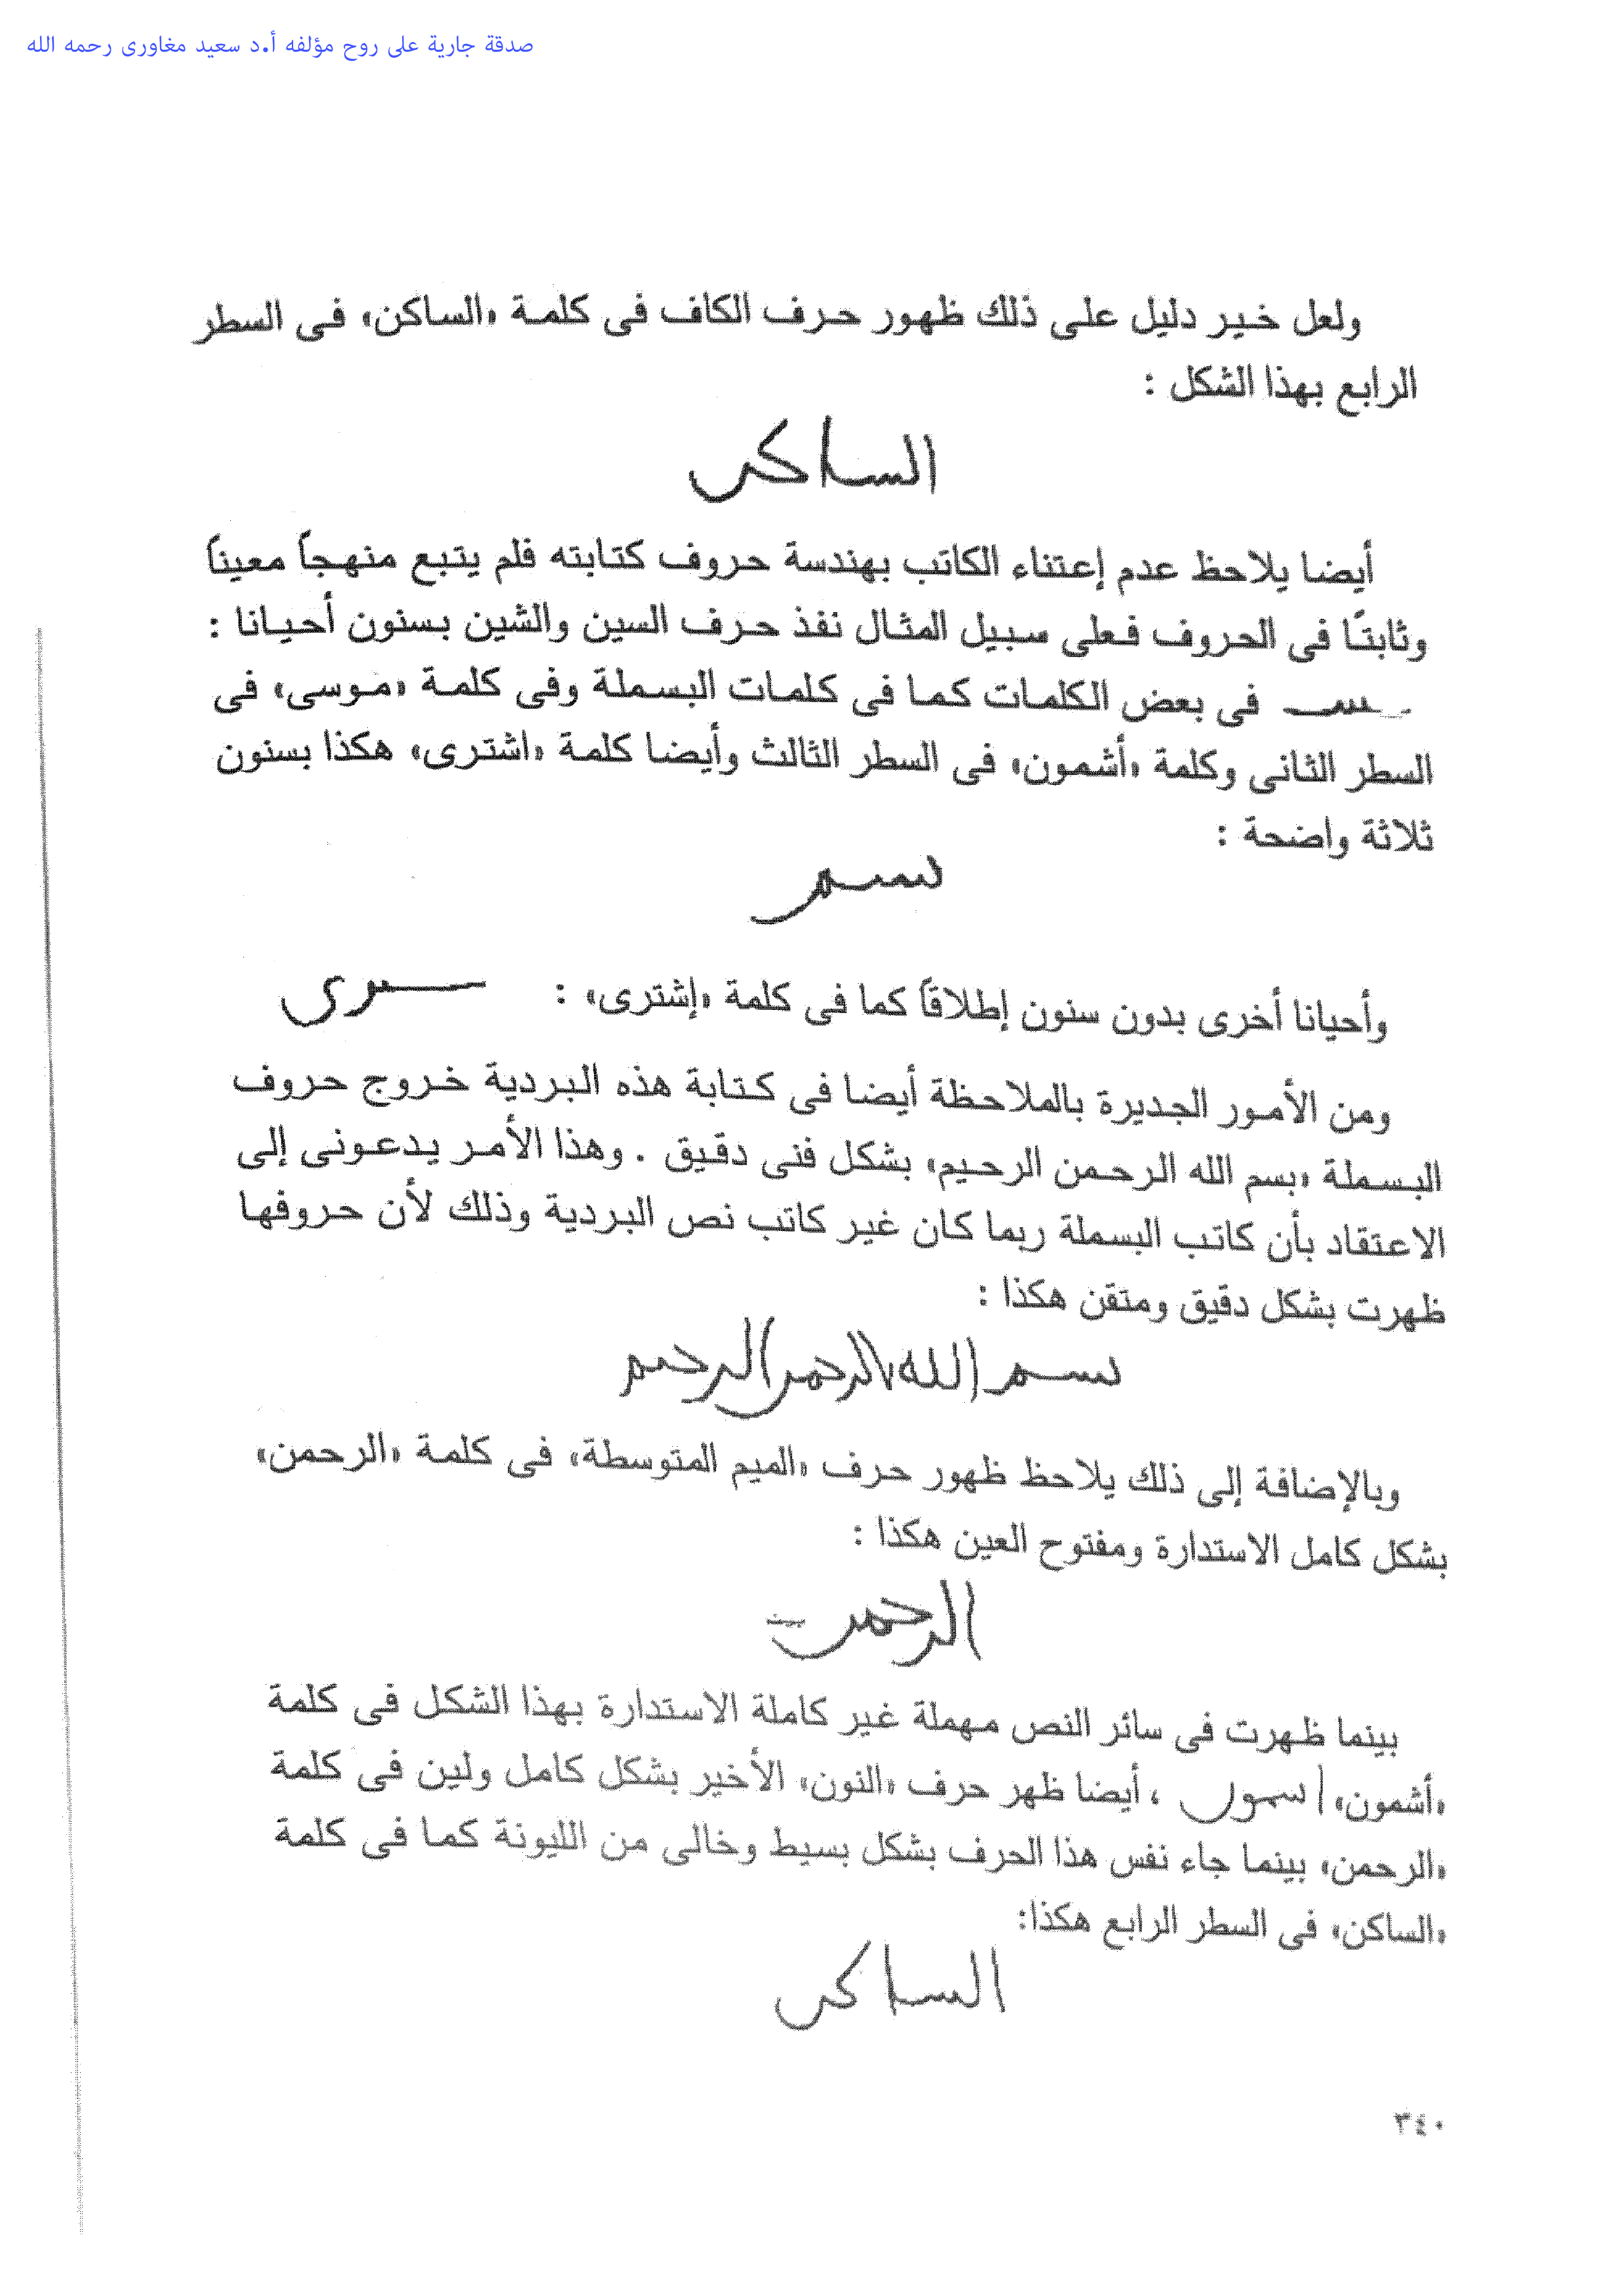 صدقة جارية على روح مؤلفه أ.د سعيد مغاورى رحمه الله
ولعل خير دليل على ذلك ظهور حرف الكاف فى كلمة «الساكن» فى السطر
الرابع بهذا الشكل :
الساكن
أيضا يلاحظ عدم إعتناء الكاتب بهندسة حروف كتابته فلم يتبع منهجاً معيناً
وثابتًا فى الحروف فعلى سبيل المثال نفذ حرف السين والشين بسنون أحيانا :
فى بعض الكلمات كما فى كلمات البسملة وفى كلمة «موسى» فى
السطر الثانى وكلمة «أشمون» فى السطر الثالث وأيضا كلمة «اشترى» هكذا بسنون
ثلاثة واضحة :
بسم
وأحيانا أخرى بدون سنون إطلاقاً كما فى كلمة «إشترى» :
ومن الأمور الجديرة بالملاحظة أيضا فى كتابة هذه البردية خروج حروف
البسملة «بسم الله الرحمن الرحيم» بشكل فنى دقيق . وهذا الأمر يدعونى إلى
الاعتقاد بأن كاتب البسملة ربما كان غير كاتب نص البردية وذلك لأن حروفها
ظهرت بشكل دقيق ومتقن هكذا :
بسم الله الرحمن الرحيم
وبالإضافة إلى ذلك يلاحظ ظهور حرف «الميم المتوسطة» فى كلمة «الرحمن»
بشكل كامل الاستدارة ومفتوح العين هكذا :
الرحمن
بينما ظهرت فى سائر النص مهملة غير كاملة الاستدارة بهذا الشكل فى كلمة
«أشمون» اسمون ، أيضا ظهر حرف «النون» الأخير بشكل كامل ولين فى كلمة
«الرحمن» بينما جاء نفس هذا الحرف بشكل بسيط وخالى من الليونة كما فى كلمة
«الساكن» فى السطر الرابع هكذا:
الساكن
٣٤٠